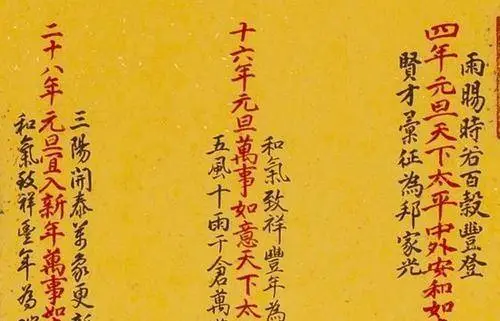 雨暘時若百穀豐登
四年元旦天下太平中外安和如
賢才彙征為邦家光
和氣致祥豐年為
十六年元旦萬事如意天下太
五風十雨千倉萬
三陽開泰萬象更新
二十八年元旦宜入新年萬事如
和氣致祥豐年為